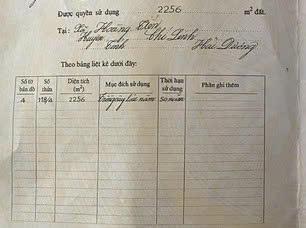 Được quyền sử dụng 2256 m² đất.
Tại : Xã Hoàng Tân
Huyện Chí Linh
Tỉnh Hải Dương
Theo bảng liệt kê dưới đây:
Số tờ bản đồ Số thửa Diện tích (m²) Mục đích sử dụng Thời hạn sử dụng Phần ghi thêm
4 2256 Trồng cây lâu năm 50 năm